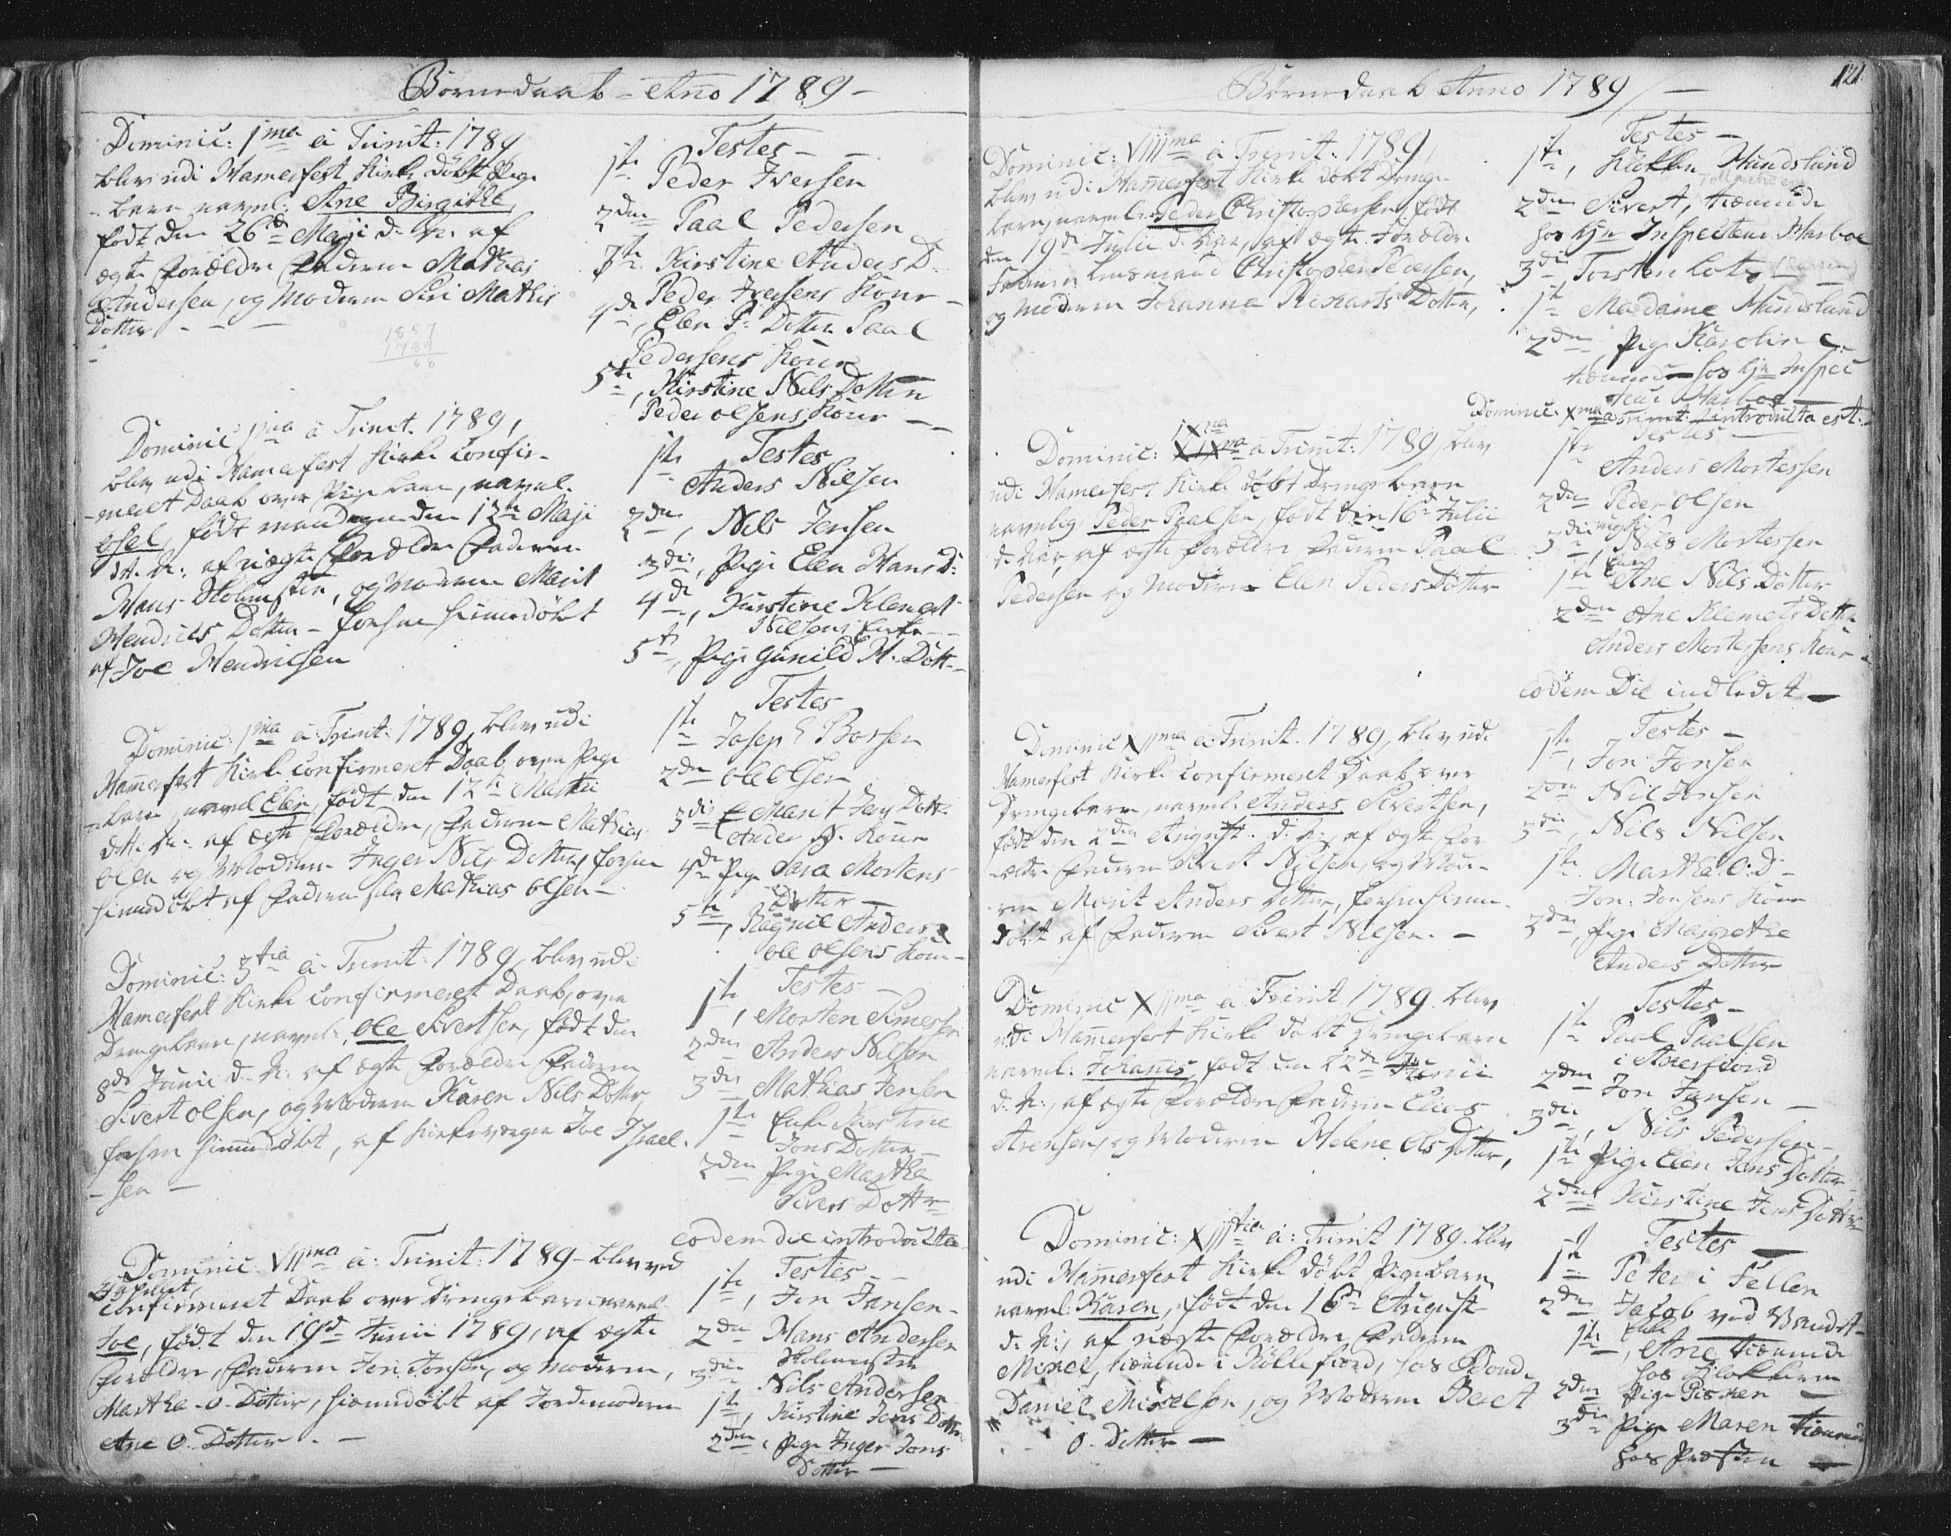 Børnedaab - Anno 1789 -
Dominic: 1ma à Trinit: 1789
blev udi Hamerfest Kirke døbt Pige
barn navnl: Ane Birgitha,
født den 26de Maji d: A: af
ægte Forældre Faderen Mathias
Andersen, og Moderen Siri Mathis
Dotter - - -
1857
1789
Testes - -
1ste Peder Iversen
2den Paal Pedersen
3de Kirstine Anders D.
Peder Iversens Kone -
4de, Elen P: Dotter Paal
Pedersens Kone
5te, Kirstine Nils Dotter
Peder Olsens Kone - -
Dominic 1ma à Trinit. 1789,
blev udi Hamerfest Kirke confir-
meret Daab over Pige barn, navnl.
født mandagen den 12te Maji
d. A: af uægte Forældre Faderen
Hans Holmsten, og Moderen Marit
Hendrics Dotter - forhen hiemedøbt
af Joe Hendricsen
1ste Testes
Anders Nilsen
2den, Nils Jensen
3die, Pige Elen Hans D:
4de, Kirstine Klemet
Nilsens Enke - -
5te, Pige Gunild M. Dott -
Dominic: 1ma à Trinit: 1789, blev udi
Hamerfest Kirke confirmeret Daab over Pige
barn, navnl Elen, født den 12te Martii
dett: A: af ægte Forældre, Faderen Mathias
Olsen og Moderen Inger Nils Dotter, forhen
hiemdøbt af Faderen selv Mathias Olsen -
1ste Testes
Joseph Borsen
2den Ole Olsen
3die Marit Jens Dott:
Ander A: Kone
4de Pige Sara Mortens
Dotter -
5te, Ragnil Anders D
Ole Olsens Kone -
Dominic: 3tia à Trinit: 1789, blev udi
Hamerfest Kirke confirmeret Daab, over
Drengebarn, navnl: Ole Sivertsen, født den
8de Junii d. A: af ægte Forældre Faderen
Sivert Olsen, og Moderen Karen Nils Dotter,
forhen hiemdøbt, af Kirkeværgen Joe Israel-
- sen -
Testes -
1ste, Morten Simessen
2den Anders Nilsen
3die Mathias Jensen
1ste Enke Kirstine
Jons Dotter -
2den Pige Martha
Sivers Dotter
eodem die introducta
Dominic: VIIma à: Trinit: 1789 - blev ved
confirmeret Daab over Drengebarn navnl:
Joe, født den 19de Junii 1789, af ægte
Forældre, Faderen Jon Jonsen, og Moderen,
Martha O: Dotter, hiemdøbt af Jordemoderen
Ane O. Dotter - -
Testes -
1ste, Jon Jansen -
2den Hans Andersen
Holmersten
3die Nils Andersen
1ste, Kirstine Jons Dotter
2den, Pige Inger Jons
Dotter -
Børnedaab Anno 1789 -
121
Dominic: VIIIIma à Trinit: 1789,
blev udi Hamerfest Kirke døbt Drenge
barn, navnl: Peder Christophersen, født
den 19de Julii d: Aar, af ægte Forældre
Faderen Huusmand Christopher Pedersen,
og Moderen Johanna Richarts Dotter,
Testes -
1ste, Klokker Hundslund
2den Sivert, tienende
hos Hr Inspecteur Harboe
3die Torsten Lots
1ste Madame Hundslund
2den, Pige Karolin C.
tienende hos Hr Inspec
teur Harboe
Dominic: Xma à Trinit: introducta est.
IXna
Dominic: à Trinit: 1789, blev
udi Hamerfest Kirke døbt Drengebarn
navnlig Peder Paalsen, født den 16de Julii
d: Aar, af ægte Forældre Faderen Paal
Pedersen og Moderen Elen Peders Dotter
Testes -
1ste Anders Mortessen
2den Peder Olsen
3die Nils Mortessen
1ste Ane Nils Dotter
2den Ane Klemets Dotter
Anders Mortessens Kone -
eodem Die indledet -
Dominic XIma à: Trinit. 1789, blev udi
Hamerfest Kirke confirmeret Daab over
Drengebarn, navnl: Anders Sivertsen,
født den 2den August. d: A:, af ægte For
ældre Faderen Sivert Nilsen, og Mode-
ren Marit Anders Dotter, forhen hiem-
døbt af Faderen Sivert Nilsen. -
Testes -
1ste, Jon Jonsen
2den Nil Jonsen
3die Nils Nilsen
1ste. Martha O: D -
Jon: Jonsens Kone
2den, Pige Margrethe
Anders Dotter
Dominic XIIma à Trinit 1789. blev
udi Hamerfest Kirke døbt Drengebarn
navnl: Johanis, født den 22de Junii
d: A:, af ægte Forældre Faderen Elias
Arensen, og Moderen Helene Ols Dotter,
Testes -
1ste Paal Paalsen
2den Jon Jansen -
3die, Nils Pedersen -
1ste Pige Elen Jons Dotter
2den Kirstine Jons Dotter
Dominic: XIIItia à: Trinit 1789. blev
udi Hamerfest Kirke døbt Pigebarn
navnl: Karen, født den 16de August
d: A:, af uægte Forældre Faderen
Mikel, tienende i Kollefiord, hos Bonde
Daniel Mikelsen, og Moderen Beret
O. Dotter -
Testes -
1ste Peter i Fellen
2den Jacob ved Vandet -
1ste, Enke Ane tienende
hos Klokkeren
2den Pige Pernen
3die Pige Maren tienende
hos Præsten -